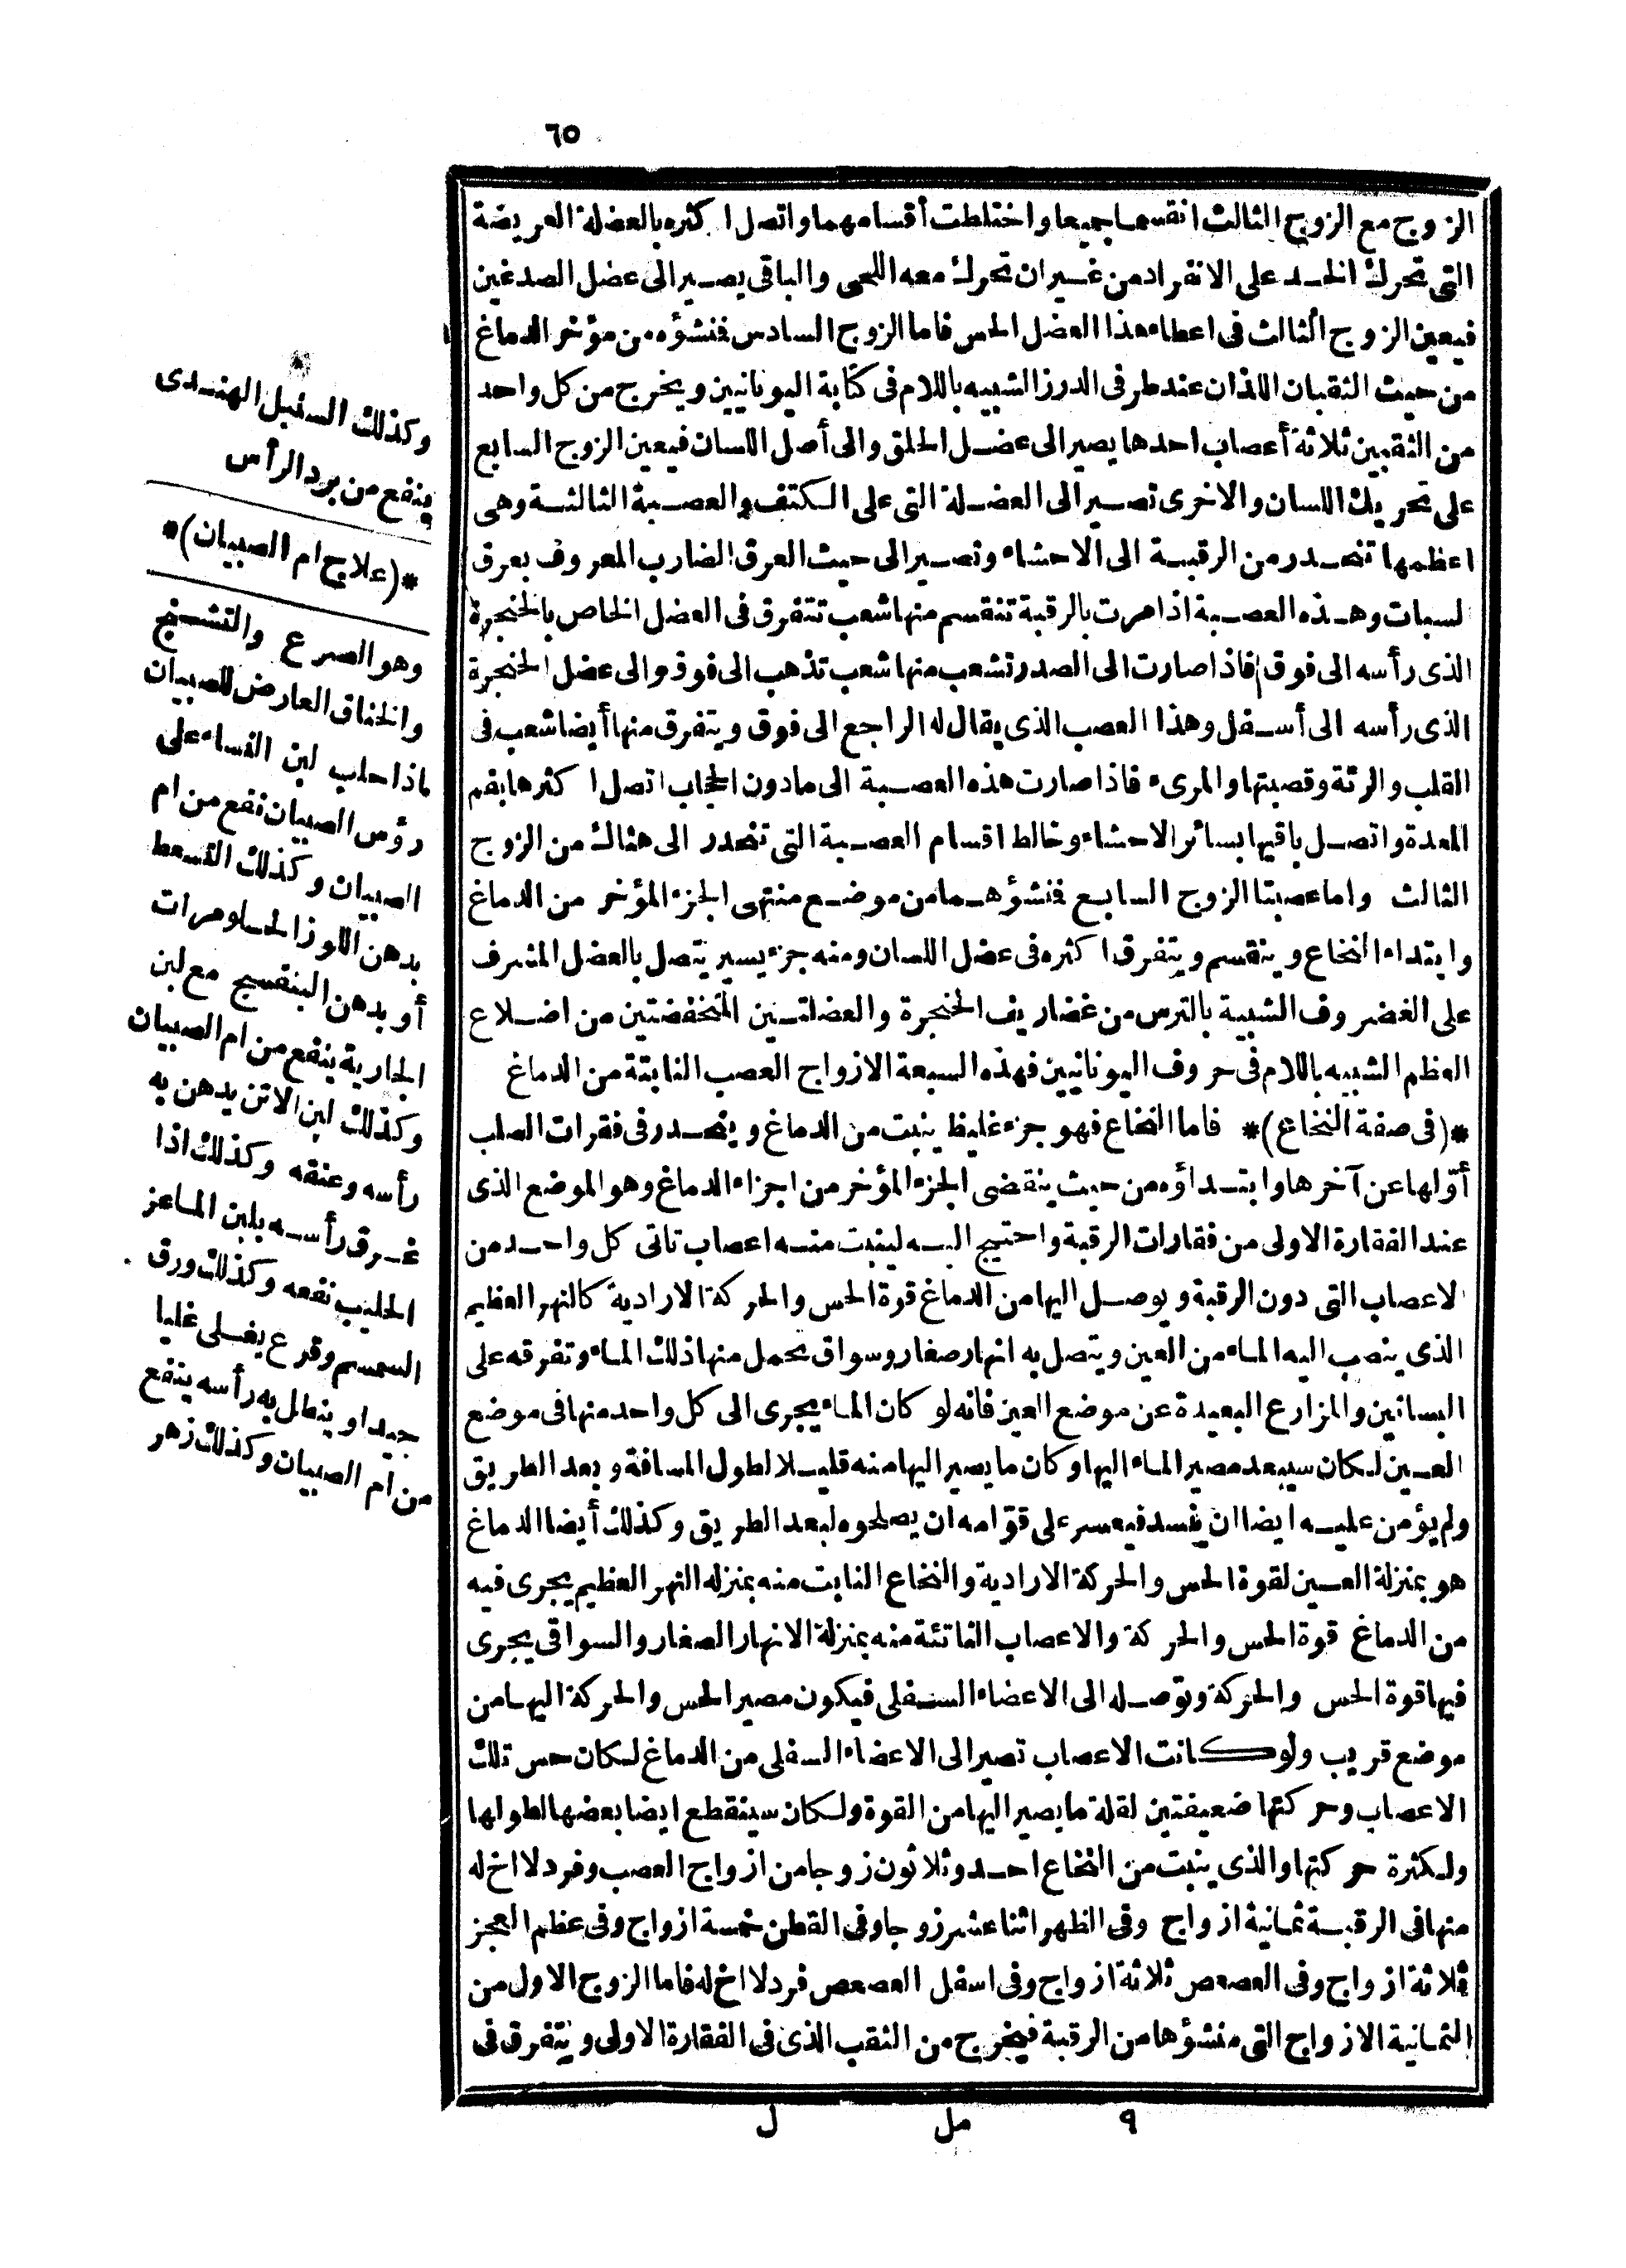 ٦٥
الزوج مع الزوج الثالث انقسما جميعا واختلطت أقسامهما واتصل اكثره بالعضلة العريضة
التى تحرك الخد على الانفراد من غير ان تحرك معه اللحى والباقى يصير الى عضل الصدغين
فيعين الزوج الثالث فى اعطاء هذا العضل الحس فاما الزوج السادس فنشؤه من مؤخر الدماغ
من حيث الثقبان اللذان عند طرفى الدرز الشبيه باللام فى كتابة اليونانيين ويخرج من كل واحد
من الثقبين ثلاثة أعصاب احدها يصير الى عضل الحلق والى أصل اللسان فيعين الزوج السابع
على تحريك اللسان والاخرى تصير الى العضلة التى على الكتف والعصبة الثالثة وهى
اعظمها تنحدر من الرقبة الى الاحشاء وتصير الى حيث العرق الضارب المعروف بعرق
لسبات وهذه العصبة اذا مرت بالرقبة تنقسم منها شعب تتفرق فى العضل الخاص بالحنجرة
الذى رأسه الى فوق فاذا صارت الى الصدر تشعب منها شعب تذهب الى فوق والى عضل الحنجرة
الذى رأسه الى أسفل وهذا العصب الذى يقال له الراجع الى فوق ويتفرق منها أيضا شعب فى
القلب والرئة وقصبتها والمرىء فاذا صارت هذه العصبة الى ما دون الحجاب اتصل اكثرها بفم
المعدة واتصل باقيها بسائر الاحشاء وخالط اقسام العصبة التى تنحدر الى هناك من الزوج
الثالث واما عصبتا الزوج السابع فنشؤهما من موضع منتهى الجزء المؤخر من الدماغ
وابتداء النخاع وينقسم ويتفرق اكثره فى عضل اللسان ومنه جزء يسير يتصل بالعضل المشرف
على الغضروف الشبية بالترس من غضاريف الحنجرة والعضلتين المنخفضتين من اضلاع
العظم الشبيه باللام فى حروف اليونانيين فهذه السبعة الازواج العصب النابتة من الدماغ
*(فى صفة النخاع)* فاما النخاع فهو جزء غليظ ينبت من الدماغ وينحدر فى فقرات الصلب
أوّلها عن آخرها وابتداؤه من حيث ينقضى الجزء المؤخر من اجزاء الدماغ وهو الموضع الذى
عند الفقارة الاولى من فقارات الرقبة واحتيج اليه لينبت منه اعصاب تاتى كل واحد من
لاعصاب التى دون الرقبة ويوصل اليها من الدماغ قوة الحس والحركة الارادية كالنهر العظيم
الذى ينصب اليه الماء من العين ويتصل به انهار صغار وسواق يحمل منها ذلك الماء وتفرقه على
البساتين والمزارع البعيدة عن موضع العين فانه لو كان الماء يجرى الى كل واحد منها فى موضع
العين لكان سيبعد مصير الماء اليها وكان ما يصير اليها منه قليلا لطول المسافة وبعد الطريق
ولم يؤمن عليه ايضا ان يفسد فيعسر على قوّامه ان يصلحوه لبعد الطريق وكذلك أيضا الدماغ
هو بمنزلة العين لقوة الحس والحركة الارادية والنخاع النابت منه بمنزله النهر العظيم يجرى فيه
من الدماغ قوة الحس والحركة والاعصاب الناتئة منه بمنزلة الانهار الصغار والسواقى يجرى
فيها قوة الحس والحركة وتوصله الى الاعضاء السفلى فيكون مصير الحس والحركة اليها من
موضع قريب ولو كانت الاعصاب تصير الى الاعضاء السفلى من الدماغ لكان حس تلك
الاعصاب وحركتها ضعيفتين لقلة ما يصير اليها من القوة ولكان سينقطع ايضا بعضها لطولها
ولكثرة حركتها والذى ينبت من النخاع احد وثلاثون زوجا من ازواج العصب وفرد لا اخ له
منها فى الرقبة ثمانية ازواج وفى الظهر اثنا عشر زوجا وفى القطن خمسة ازواج وفى عظم العجز
ثلاثة ازواج وفى العصعص ثلاثة ازواج وفى اسفل العصعص فرد لا اخ له فاما الزوج الاول من
الثمانية الازواج التى منشؤها من الرقبة فيخرج من الثقب الذى فى الفقارة الاولى ويتفرق فى
٩ مل ل
وكذلك السنبل الهندى
ينفع من برد الرأس
*(علاج ام الصبيان)*
وهو الصرع والتشنج
والخناق العارض للصبيان
اذا حلب لبن النساء على
رؤس الصبيان نفع من ام
الصبيان وكذلك التسعط
بدهن اللوز الحلو مرات
أو بدهن البنفسج مع لبن
الجارية ينفع من ام الصبيان
وكذلك لبن الاتن يدهن به
رأسه وعنقه وكذلك اذا
غرق رأسه بلبن الماعز
الحليب نفعه وكذلك ورق
السمسم وقرع يغلى غليا
جيدا وينطل به رأسه ينفع
من ام الصبيان وكذلك زهر